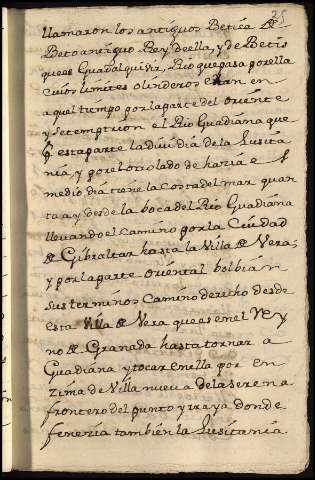 25
llamaron los antiguos Betica de
Beto antiguo Rey de ella, y de Betis
que es Guadalquivir, Rio que pasa por ella
cuios limites o linderos eran en
aquel tiempo por la parte del oriente
y setemptrion el Rio Guadiana que
por esta parte la divi dia de la Lusita
nia, y por el otro lado de hazia e l
medio dia tiene la costa del mar quan
ta ay desde la boca del Rio Guadiana
llevando el camino por la Ciudad
de Gibraltar hasta la Villa de Vera,
y por la parte oriental bolbian
sus terminos camino derecho desde
esta Villa de Vera que es en el Rey
no de Granada hasta tornar a
Guadiana y tocar en ella por en
zima de Villa nueva de la serena
frontero del punto y raya donde
fenezia tambien la Lusitania